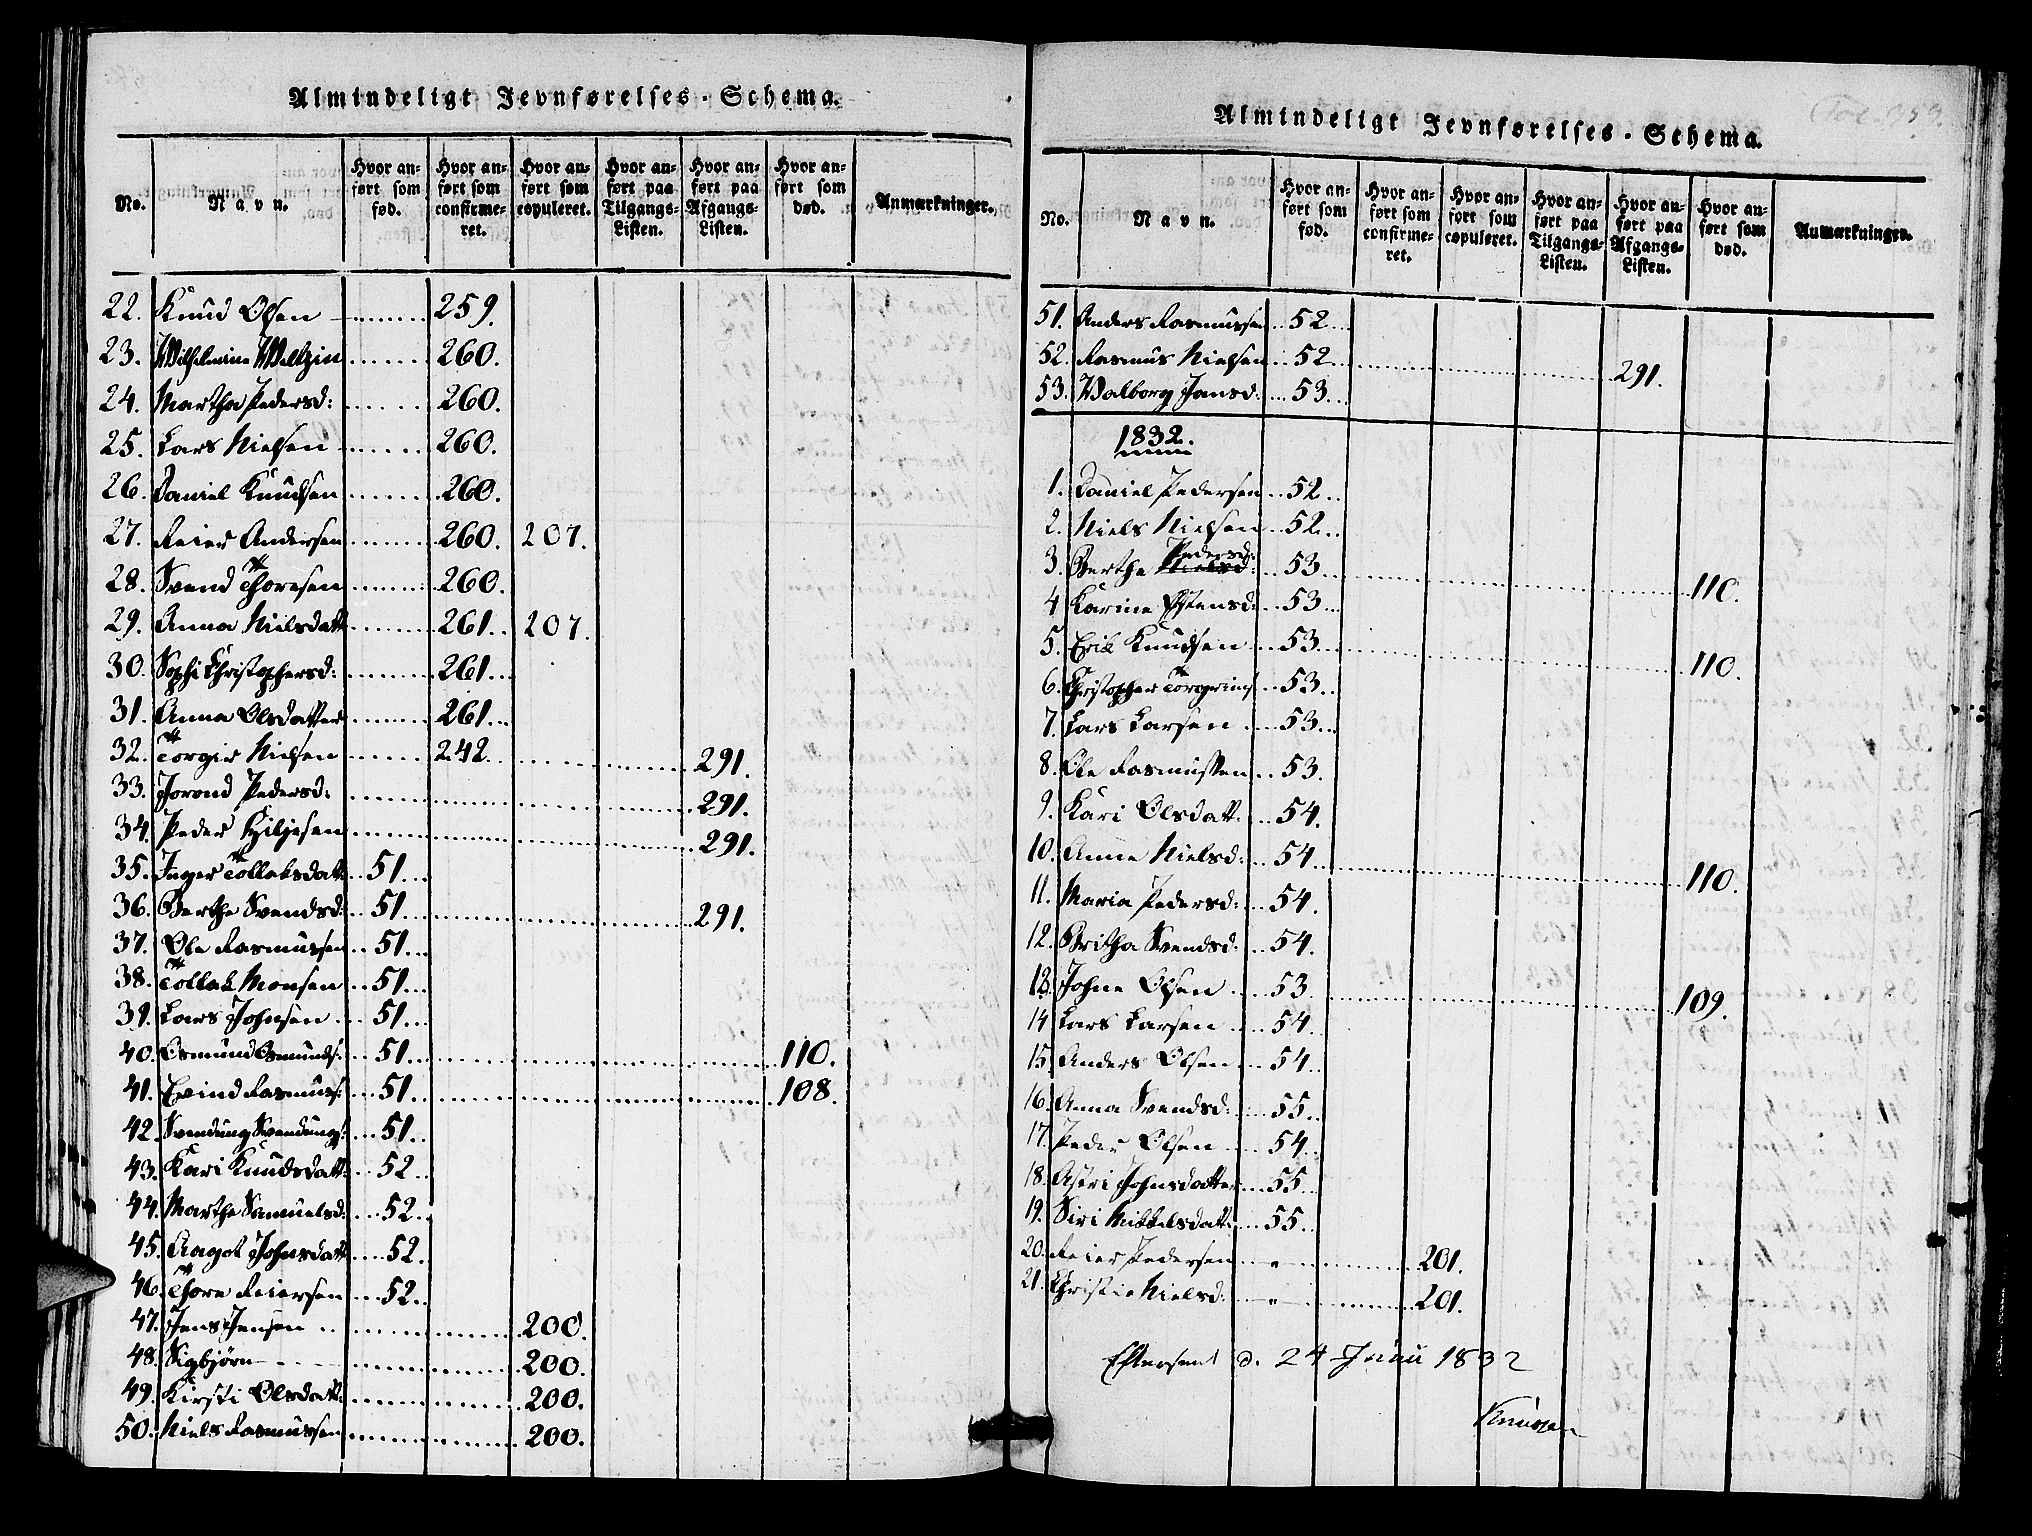 Almindeligt Jevnførelses-Schema.
No. Navn. Hvor anført som fød. Hvor anført som confirmeret. Hvor anført som copuleret. Hvor anført paa Tilgangs-Listen. Hvor anført paa Afgangs-Listen. Hvor anført som død. Anmærkninger.
22. Knud Olsen 259.
23. Wilhelmine Weltzin 260.
24. Martha Pedersd: 260.
25. Lars Nielsen 260.
26. Daniel Knudsen 260.
27. Reier Andersen 260. 207.
28. Svend Thoresen 260.
29. Anna Nielsdatt 261. 207.
30. Sophi Christophersd: 261.
31. Anna Olsdatter 261.
32. Torgier Nielsen 242. 291.
33. Jorond Pedersd: 291.
34. Peder Hiljesen 291.
35. Inger Tollaksdatt: 51.
36. Berthe Svendsd: 51. 291.
37. Ole Rasmussen 51.
38. Tollak Monsen 51.
39. Lars Johnsen 51.
40. Osmund Osmunds: 51. 110.
41. Eeind Rasmuss: 51. 108.
42. Svendung Svendungs: 51.
43. Kari Knudsdatt: 52.
44. Marthe Samuelsd: 52.
45. Aagot Johnsdatt 52.
46. Thore Reiersen 52.
47. Jens Jensen 200.
48. Sigbjørn 200.
49. Kirsti Olsdatt: 200.
50. Niels Rasmussen 200.
Almindeligt Jevnførelses-Schema.
Fol. 959.
No. Navn. Hvor anført som fød. Hvor anført som confirmeret. Hvor anført som copuleret. Hvor anført paa Tilgangs-Listen. Hvor anført paa Afgangs-Listen. Hvor anført som død. Anmærkninger.
51. Anders Rasmussen 52.
52. Rasmus Nielsen 52. 291.
53. Walborg Jansd: 53.
1832.
1. Daniel Pedersen 52.
2. Niels Nielsen 52.
3. Berthe Nielsd Pedersd: 53. 110.
4 Karine Estensd: 53.
5. Erik Knudsen 53. 110.
6. Christopher Torgrims 53.
7. Lars Larsen 53.
8. Ole Rasmussen 53.
9. Kari Olsdatt: 54.
10. Anne Nielsd: 54. 110.
11. Maria Pedersd: 54.
12. Britha Svendsd: 54.
13. Johne Olsen 53. 109.
14 Lars Larsen 54.
15. Anders Olsen 54.
16. Anna Svendsd: 55.
17. Peder Olsen 54.
18. Astri Johnsdatter 55.
19. Siri Mikkelsdatt: 55.
20. Reier Pedersen " 201.
21. Christie Nielsd: " 201.
Efterseet d. 24 Juni 1832
Knudsen